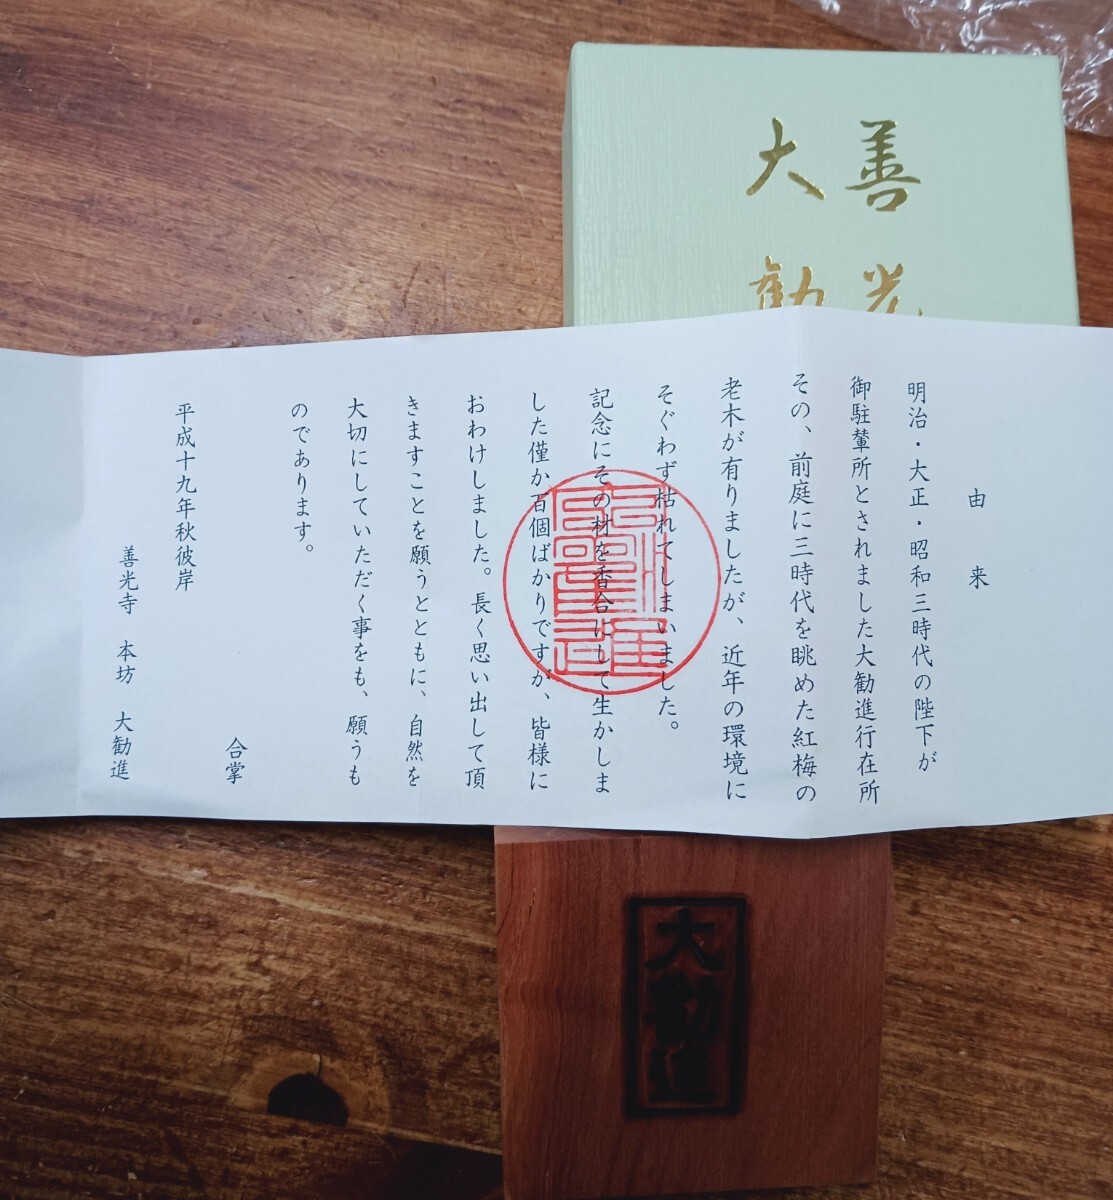 善光
大勧
由来
明治・大正・昭和三時代の陛下が
御駐輦所とされました大勧進行在所
その、前庭に三時代を眺めた紅梅の
老木が有りましたが、近年の環境に
そぐわず枯れてしまいました。
記念にその材を香合にして生かしま
した僅か百個ばかりですが、皆様に
おわけしました。長く思い出して頂
きますことを願うとともに、自然を
大切にしていただく事をも、願うも
のであります。
合掌
平成十九年秋彼岸
善光寺 本坊 大勧進
大勧進